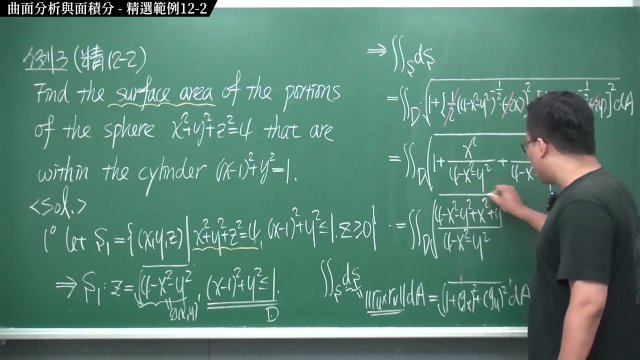 曲面分析與面積分 - 精選範例12-2
例3 (精12-2)
Find the surface area of the portions
of the sphere x²+y²+z²=4 that are
within the cylinder (x-1)²+y²=1.
<Sol.>
1° let S₁={(x,y,z)| x²+y²+z²=4, (x-1)²+y²≤1, z≥0}
⇒ S₁: z=√(4-x²-y²), (x-1)²+y²≤1.
g(x,y)
D
⇒ ∬_S₁ dS
=∬_D √(1+[½(4-x²-y²)^(-½)(-2x)]²
]² dA
=∬_D √(1+ x²/(4-x²-y²) +
=∬_D √((4-x²-y²+x²+y
/(4-x²-y²)
∬_S dS
||ru×rv||dA=√(1+(gx)²+(gy)²) dA